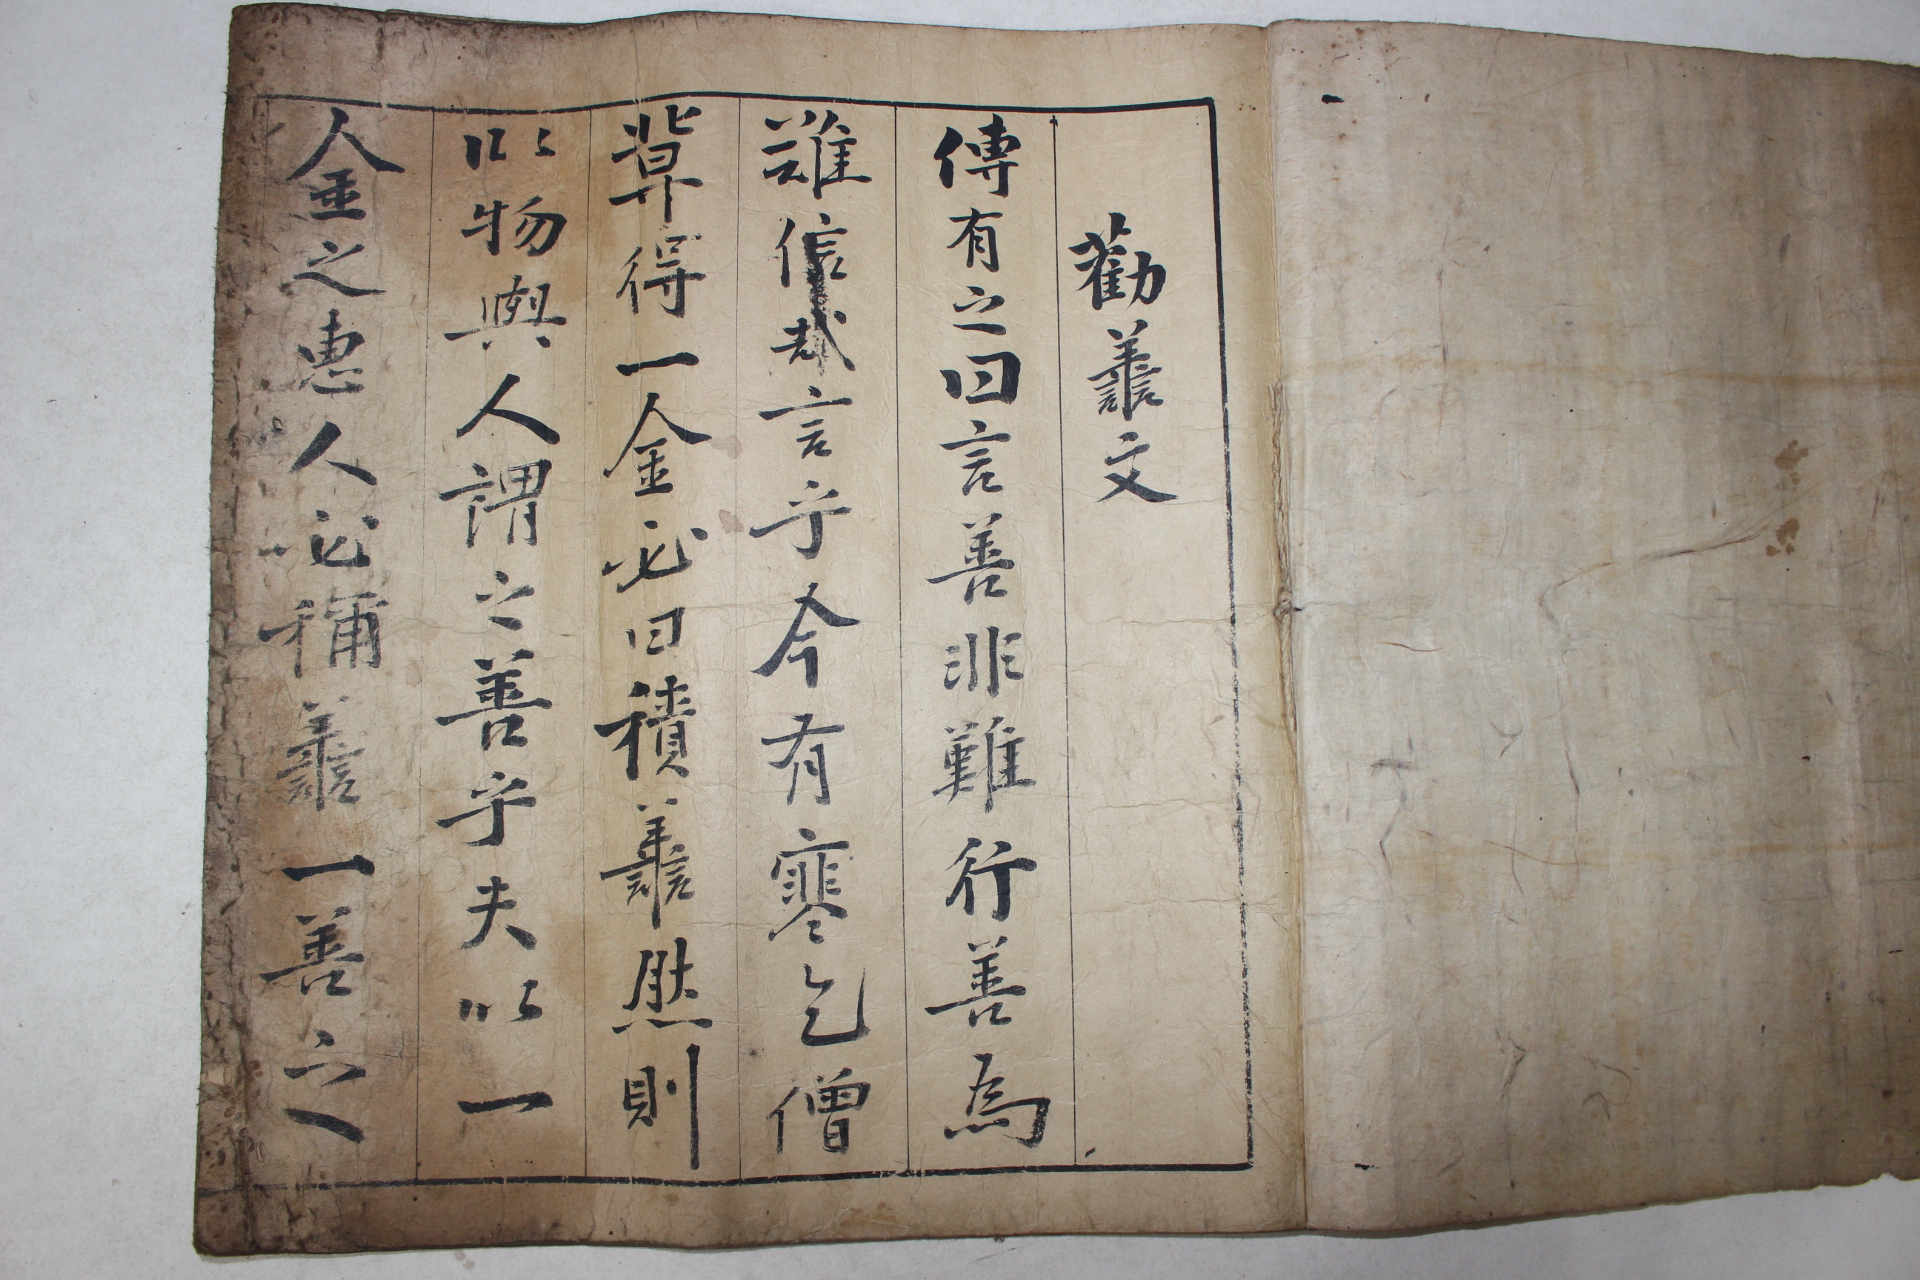 勸譱文
傳有之曰言善非難行善為
難信哉言乎今有寒乞僧
冀得一金必曰積譱然則
以物與人謂之善乎夫以一
金之惠人必稱譱一善之人